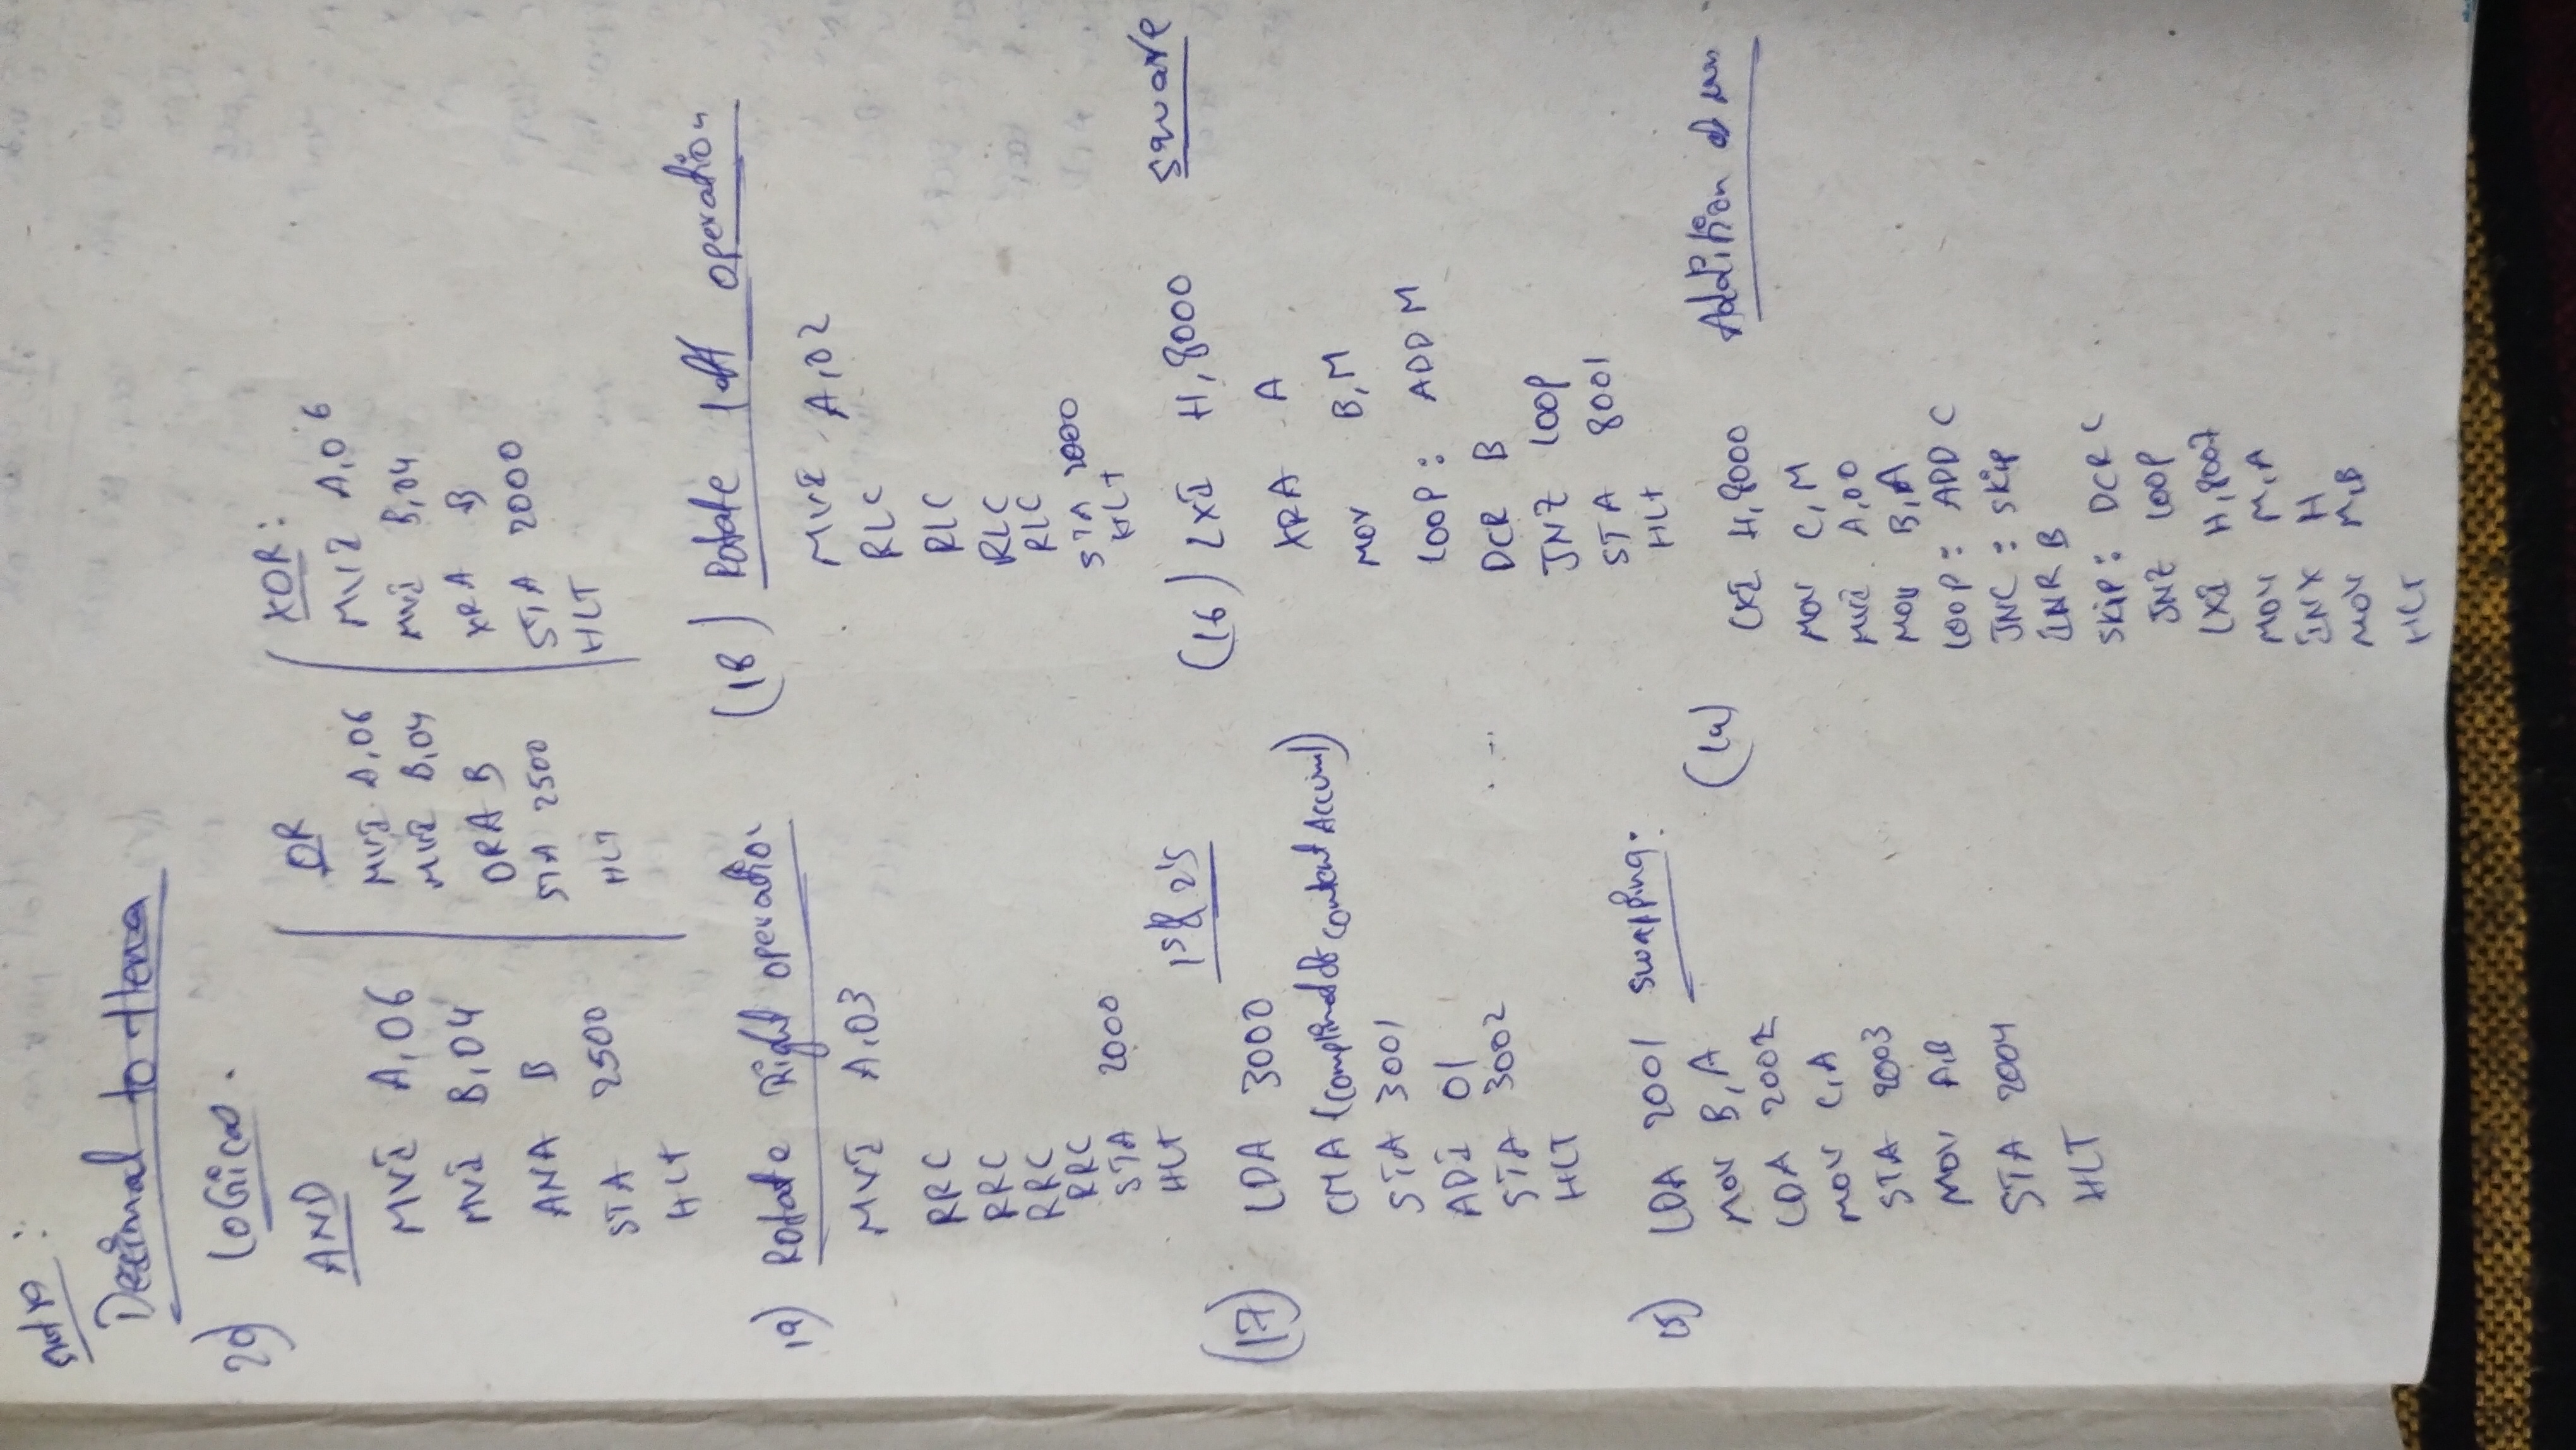 Decimal to Hexa
20) Logical.
AND
MVI A,06
MVI B,04
ANA B
STA 2500
HLT
OR
MVI A,06
MVI B,04
ORA B
STA 2500
HLT
XOR:
MVI A,06
MVI B,04
XRA B
STA 2000
HLT
19) Rotate Right operation
MVI A,03
RRC
RRC
RRC
RRC
STA 2000
HLT
(18) Rotate left operation
MVI A,02
RLC
RLC
RLC
RLC
STA 2000
HLT
(17) 1's & 2's
LDA 3000
CMA (Complimet of content Accuml)
STA 3001
ADI 01
STA 3002
HLT
(16) LXI H,8000 Square
XRA A
MOV B,M
LOOP: ADD M
DCR B
JNZ LOOP
STA 8001
HLT
15) LDA 2001 swapping.
MOV B,A
LDA 2002
MOV C,A
STA 2003
MOV A,B
STA 2004
HLT
LXI H,8000 Addition of
MOV C,M
MVI A,00
MOV B,A
LOOP: ADD C
JNC : Skip
INR B
Skip: DCR C
JNZ LOOP
LXI H,8007
MOV M,A
INX H
MOV M,B
HLT